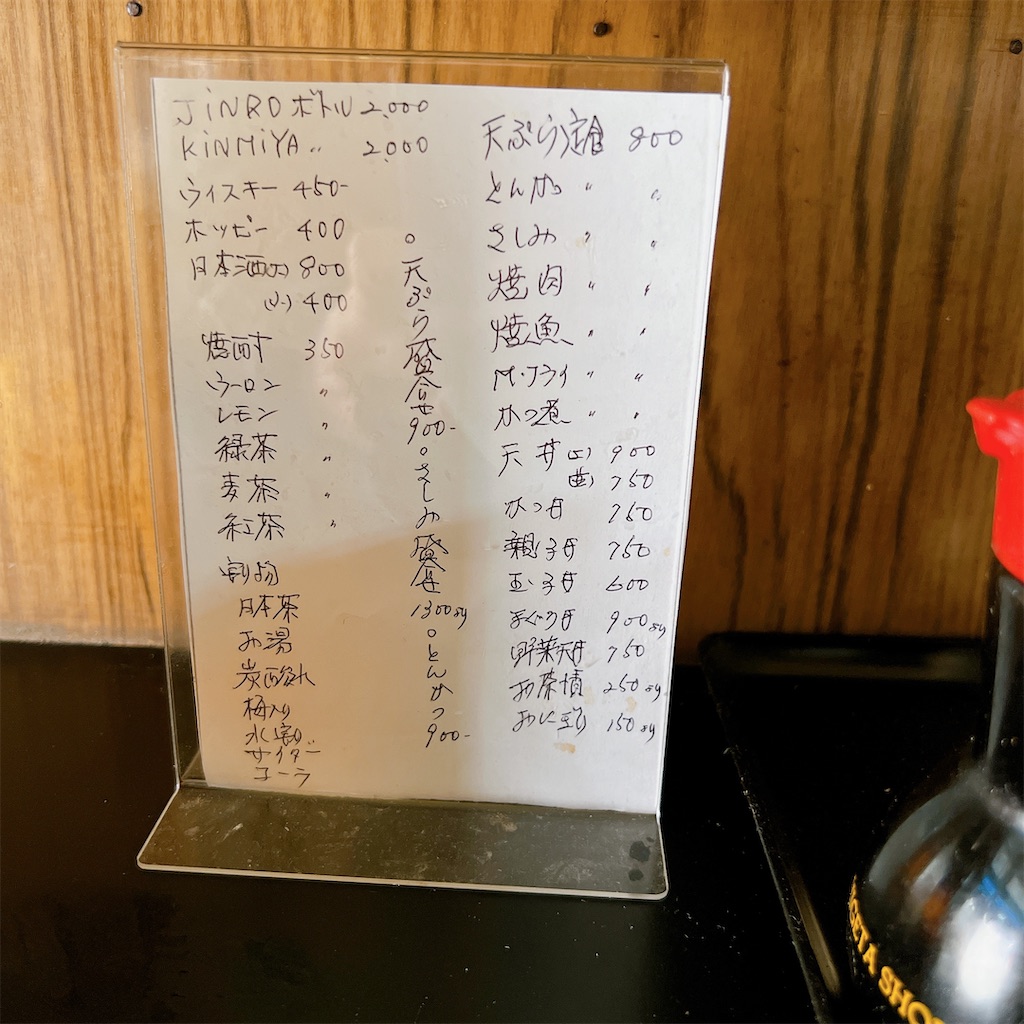 JiNRO ボトル 2,000
KiNMiYA 〃 2,000
ウイスキー 450-
ホッピー 400
日本酒(大) 800
(小) 400
焼酎す 350
ウーロン 〃
レモン 〃
緑茶 〃
麦茶 〃
紅茶 〃
割物
日本茶
お湯
炭酸
梅入り
水割り
サイダー
コーラ
○天ぷら盛合せ 900-
○さしみ盛合せ 1300より
○とんかつ 900-
天ぷら定食 800
とんかつ 〃 〃
さしみ 〃 〃
焼肉 〃 〃
焼魚 〃 〃
M・フライ 〃 〃
かつ煮 〃 〃
天丼(上) 900
(並) 750
かつ丼 750
親子丼 750
玉子丼 600
まぐろ丼 900より
野菜天丼 750
お茶漬 250より
おにぎり 150より
ETA SHO